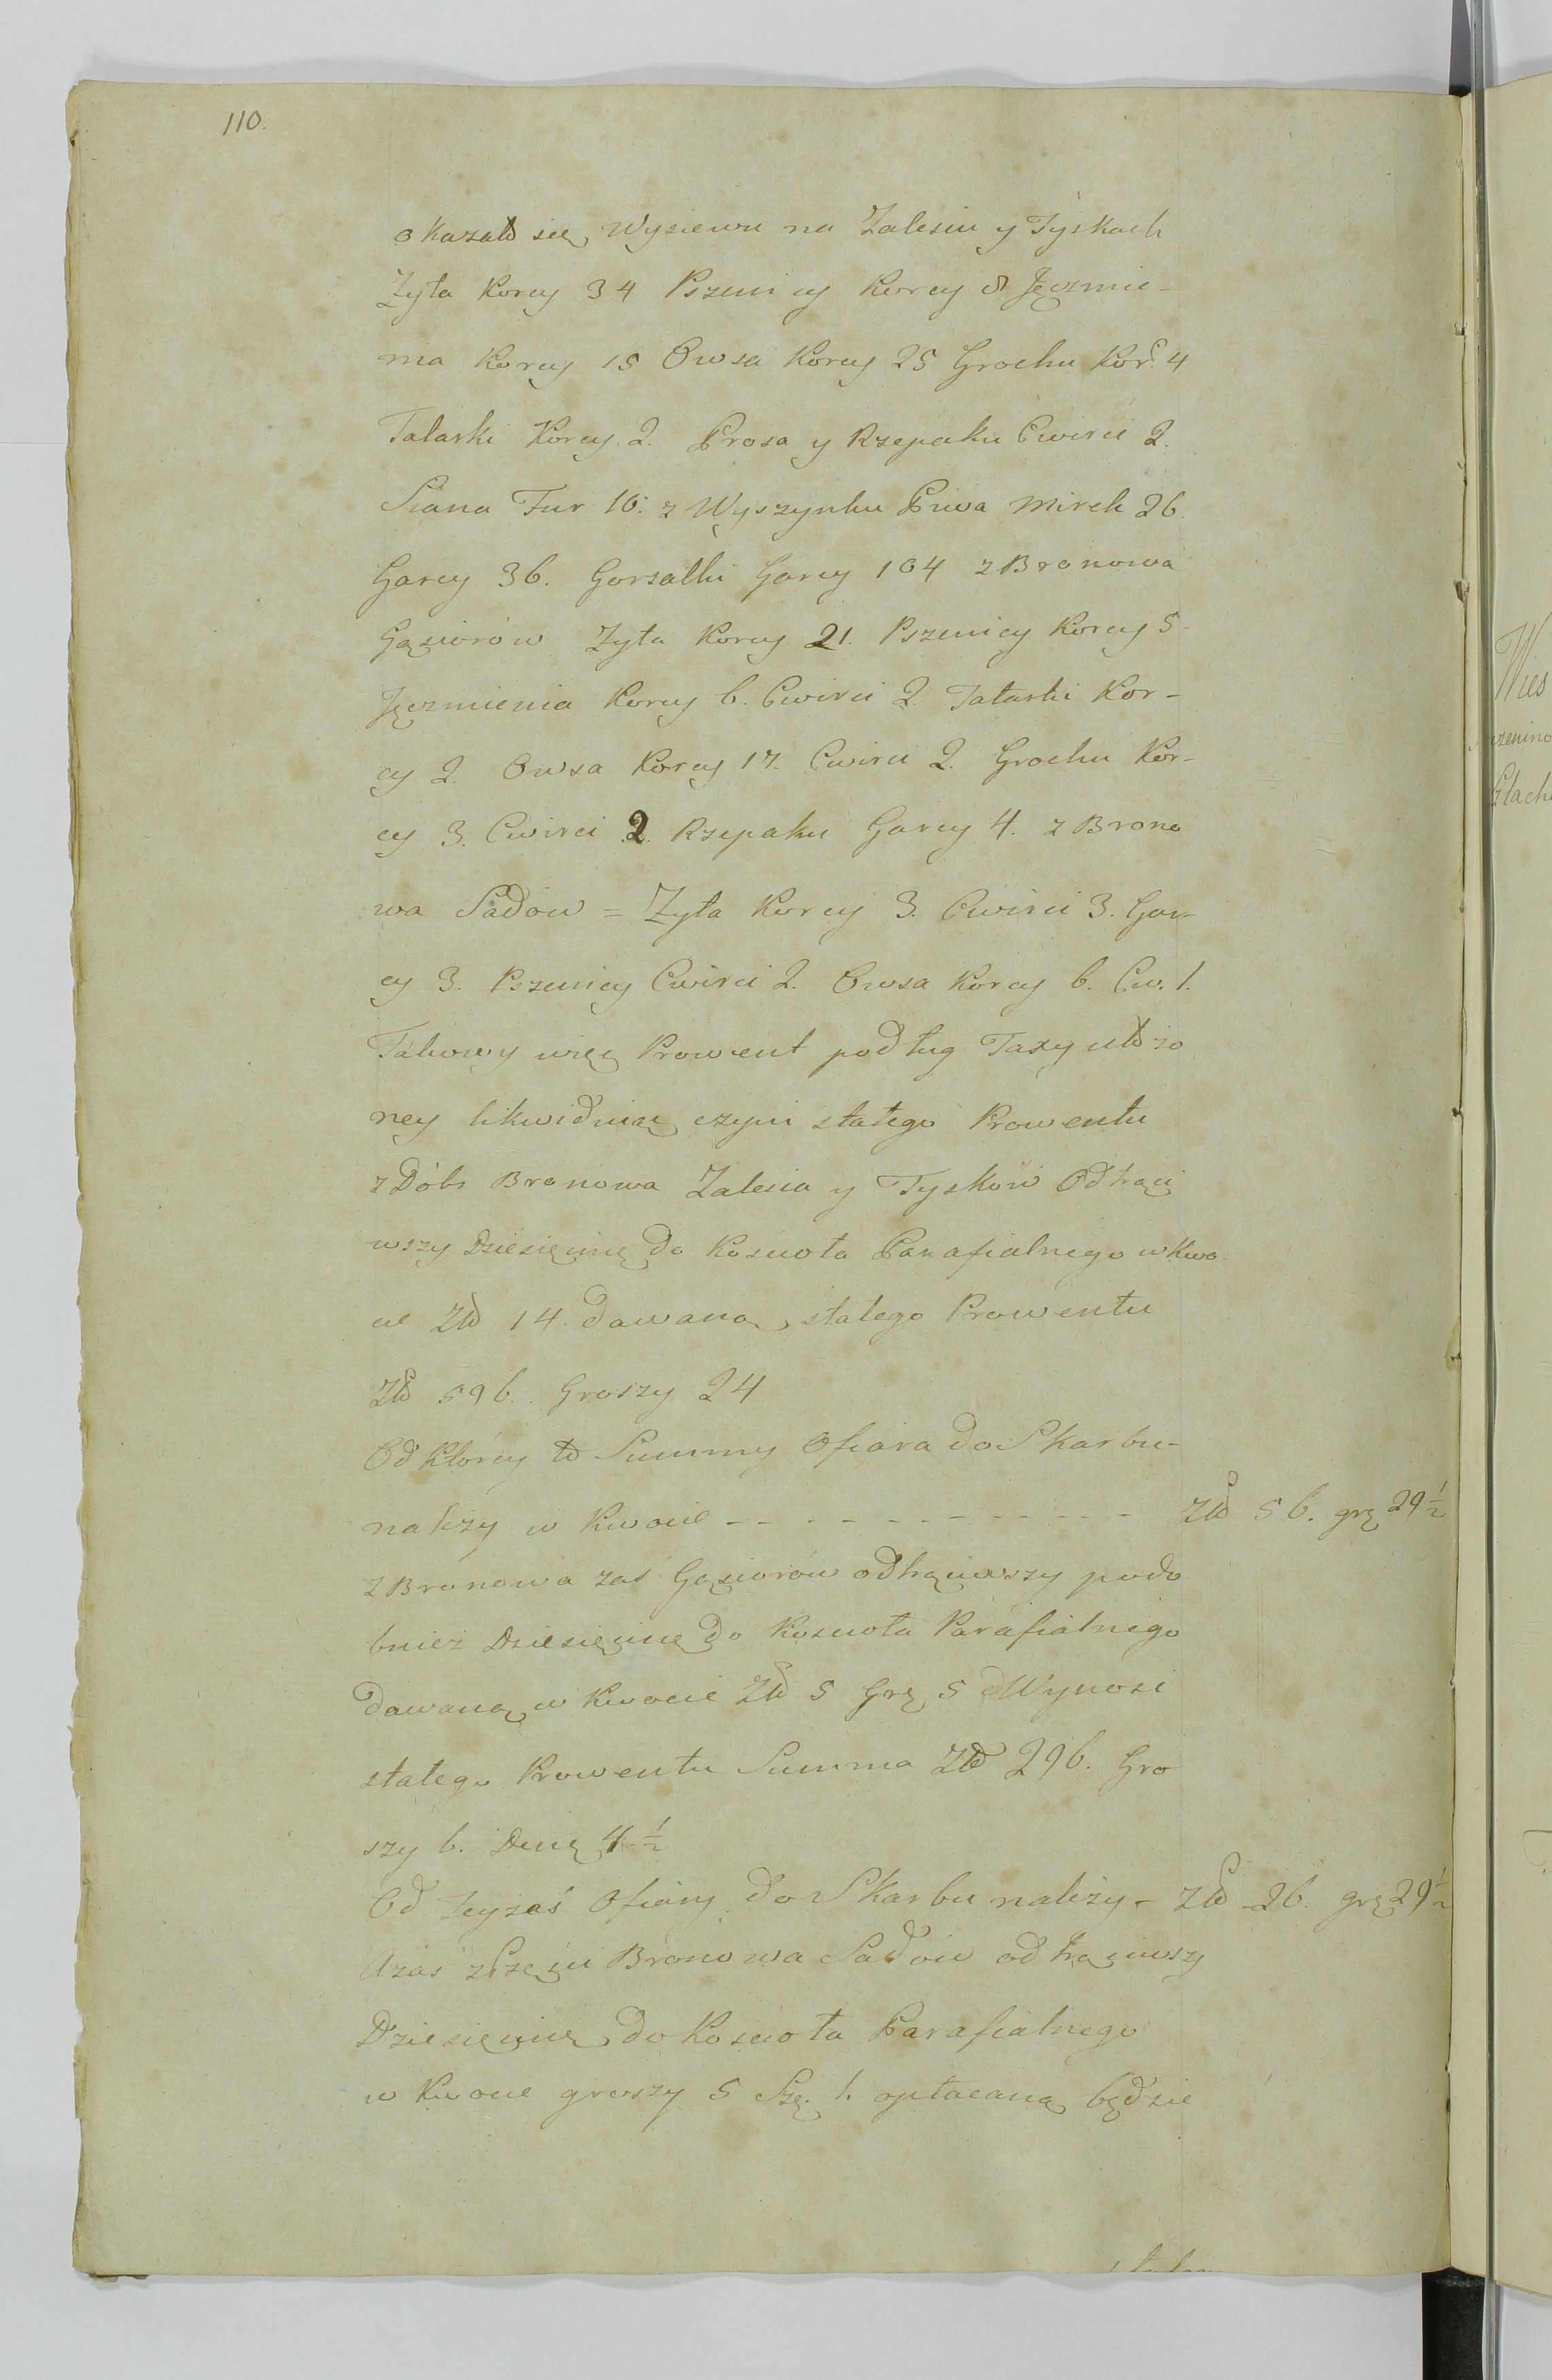 110.
okazało się Wysiewu na Zalesiu y Tyskach
Zyta Korcy 34 Pszenicy Korcy 8 Jęczmie-
nia Korcy 15 Owsa Korcy 25 Grochu Kor. 4
Tatarki Korcy 2. Prosa y Rzepaku Cwirci 2.
Siana Fur 10. z Wyszynku Piwa Mirek 26.
Garcy 36. Gorzałki Garcy 104 z Bronowa
Gąsiorów Zyta Korcy 21. Pszenicy Korcy 5
Jęczmienia Korcy 6. Cwirci 2. Tatarki Kor-
cy 2. Owsa Korcy 17. Cwirci 2. Grochu Kor-
cy 3. Cwirci 2. Rzepaku Garcy 4. z Brono
wa Sadów = Zyta Korcy 3. Cwirci 3. Gar-
cy 3. Pszenicy Cwirci 2. Owsa Korcy 6. Cw. 1.
Takowy więc Prowent podług Taxy ułożo
ney likwiduiąc czyni stałego Prowentu
z Dóbr Bronowa Zalesia y Tysków Odtrąci
wszy Dziesięcinę do Koscioła Parafialnego w Kwo-
cie Zł 14. dawaną, stałego Prowentu
Zł 596. Groszy 24
Od Ktorey to Summy Ofiara do Skarbu-
nalezy w Kwocie - - - - - - - - - - - zł 56. grę 29 1/2
z Bronowa zaś Gąsiorów odtrąciwszy podo
bniez Dziesięcinę do Koscioła Parafialnego
dawaną w Kwocie Zł 5 Grę 5 Wynosi
stałego Prowentu Summa Zł 296. Gro
szy 6. Denę 4 1/2
Od teyzaś Ofiary do Skarbu nalezy - zł 26. grę 29 1/2
Azaś z Częsci Bronowa Sadów odtrąciwszy
Dziesięcinę do Koscioła Parafialnego
w Kwocie groszy 5 Szę. 1. opłacaną będzie